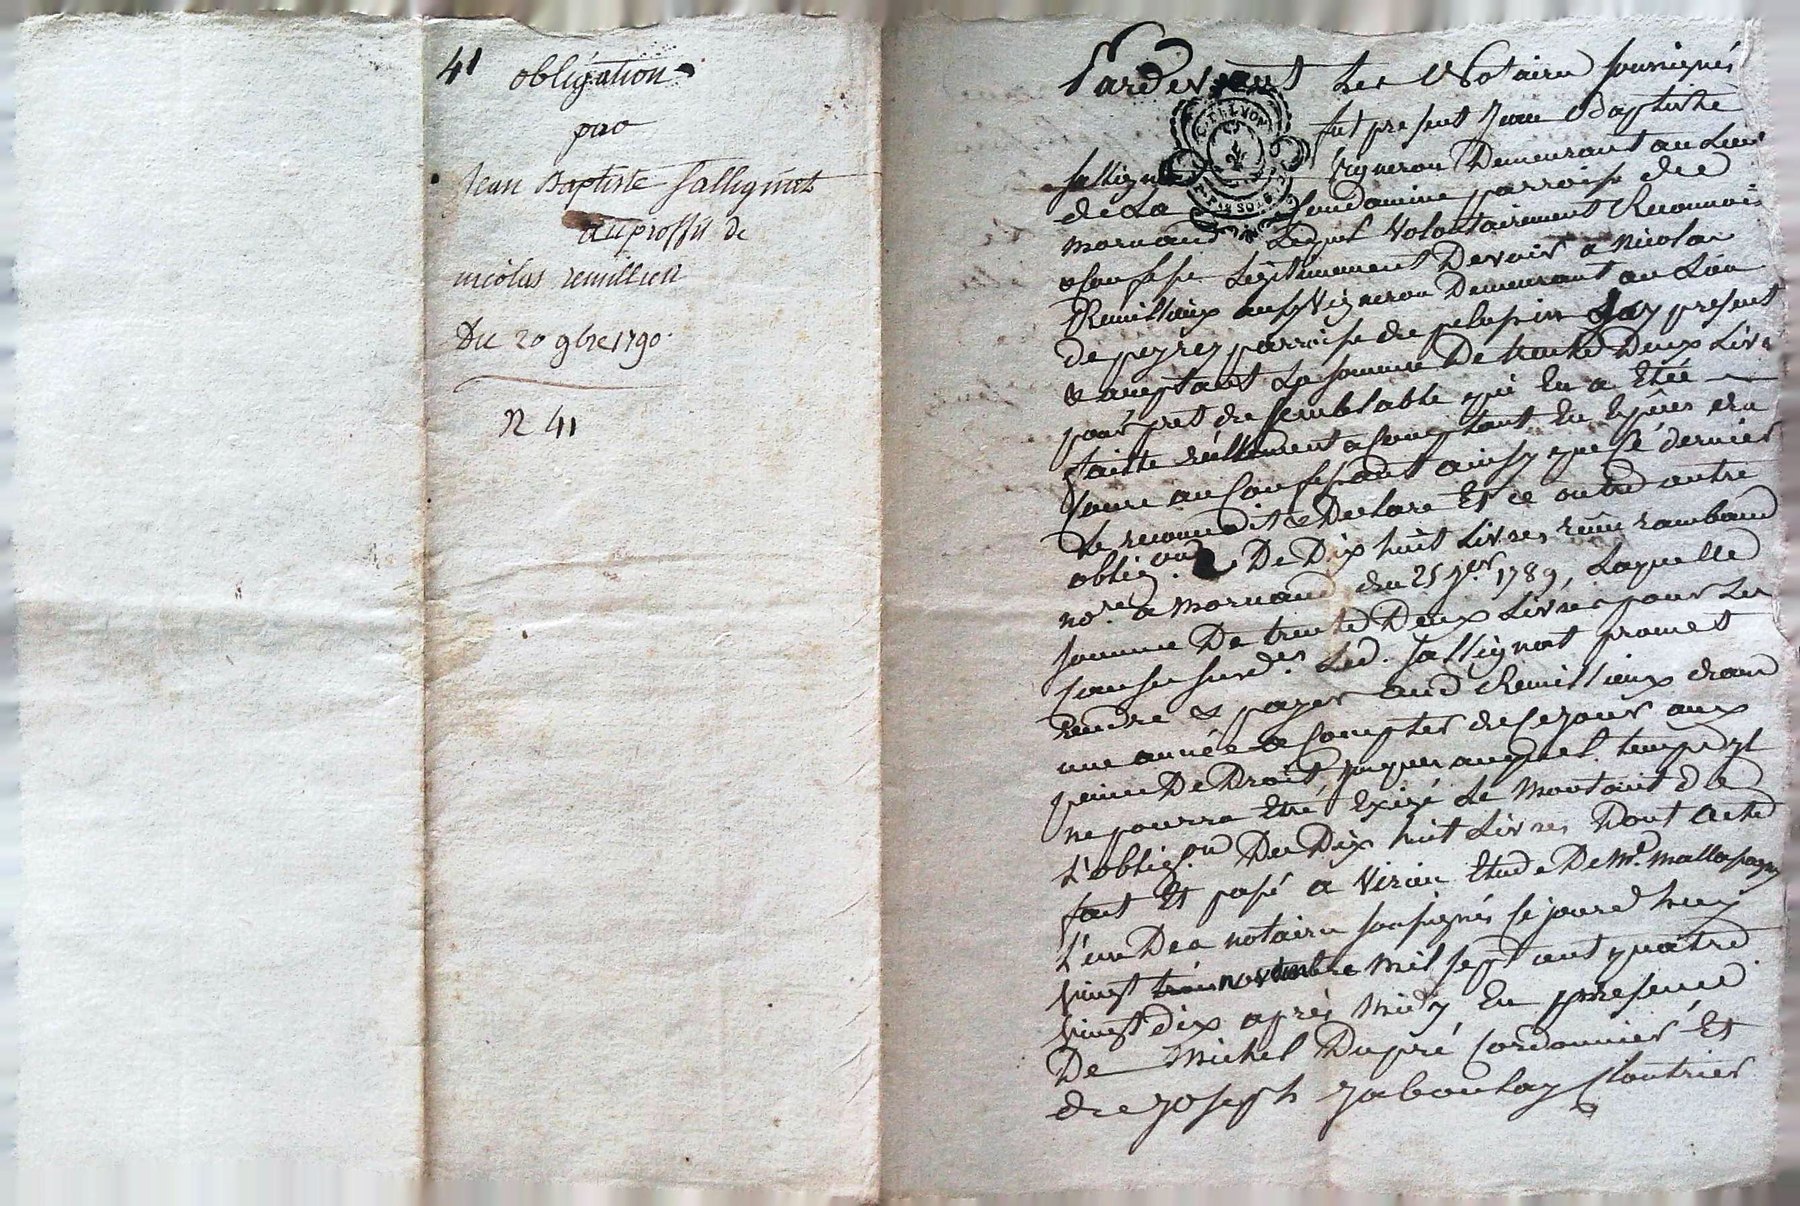 41
obligation
par
Jean Baptiste Sallignat
au proffit de
nicolas remillien
Du 20 9bre 1790
N 41
Pardevant Les Notaires soussignés
fut present Jean Baptiste
Vigneron Demeurant au Lieu
de La Condamine parroisse de
mornand Lequel Volontairement Reconnoi
& Confesse Legitimement Devoir a Nicolas
Remillieux aussy Vigneron Demeurant au Lieu
de peyrey parroisse de pelussin Icy present
& aceptant La somme De trente Deux Livres
pour pret de semblable qui Lui a Etée
faitte réellement a Comptant En Espèces de
Cours au Confessant ainsy que Cé dernier
Le reconnoit & Declare Et ce outre autre
oblig.on De Dix huit Livres reçue rambaud
no.re a mornand du 25 1789, Laquelle
somme De trente Deux Livres pour Les
Causes susd.es Led. Sallignat promet
Rendre & payer aud Remillieux dans
une année a Compter de Ce jour aux
peines De Droit jusques auquel temps il
ne pourra Etre Exigé Le Montant de
L'oblig.on De Dix huit Livres Dont acte
fait Et passé a Etude De Me.
L'un Des notaires soussignés Ce jourd'huy
Vingt novembre Mil sept cent quatre
Vingt dix après Midy En presence
De Michel Dupré Cordonnier Et
de Joseph Jaboulay Cloutrier